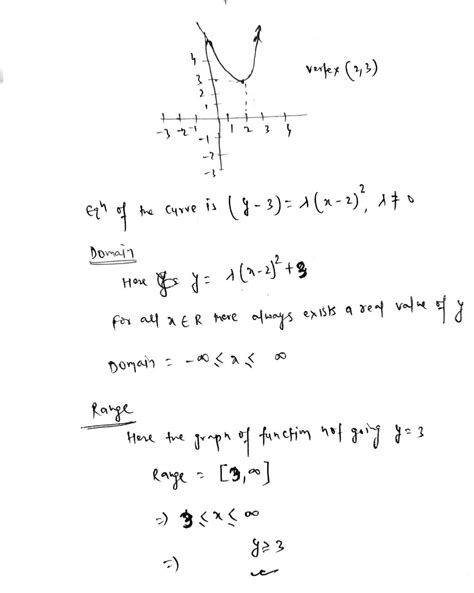 4
vertex (2,3)
3
2
1
-3 -2 -1 1 2 3 4
-1
-2
-3
Eqⁿ of the curve is (y-3) = λ(x-2)², λ ≠ 0
Domain
Here y = λ(x-2)² + 3
For all x ∈ R there always exists a real value of y
Domain = -∞ ≤ x ≤ ∞
Range
Here the graph of function not going y = 3
Range = [3, ∞]
=) 3 ≤ x ≤ ∞
=) y ≥ 3